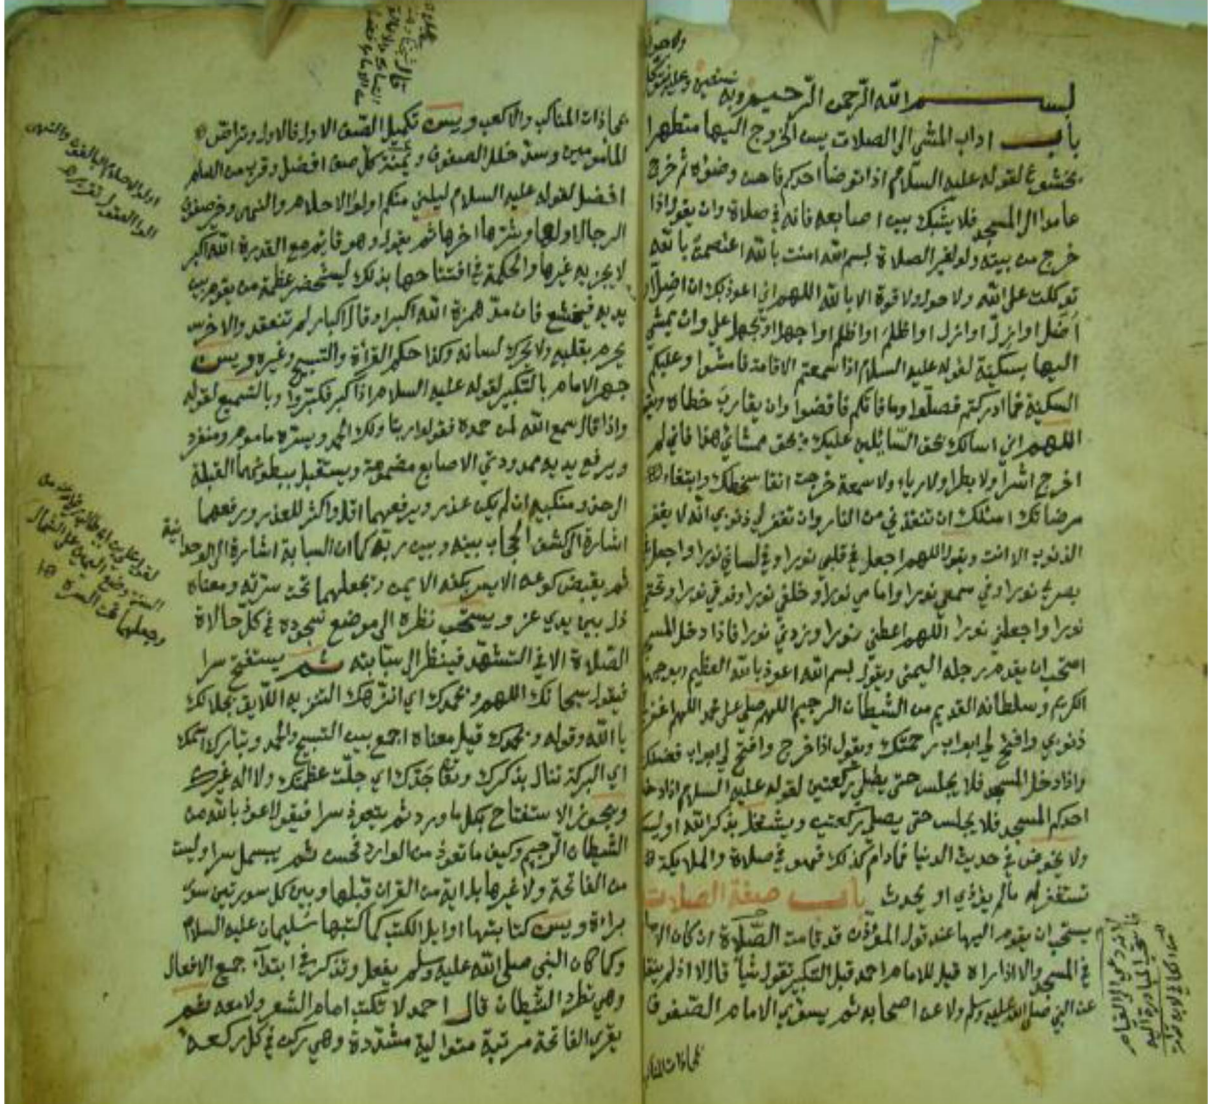 بسم الله الرحمن الرحيم وبه نستعين وعليه نتوكل
باب اداب المشي الى الصلات يسن الخروج اليها متطهرا
بخشوع لقوله عليه السلام اذا توضأ احدكم فاحسن وضوءه ثم خرج
عامدا الى المسجد فلا يشبك بين اصابعه فانه في صلاة وان يقول اذا
خرج من بيته ولو لغير الصلاة بسم الله امنت بالله اعتصمت بالله
توكلت على الله ولا حول ولا قوة الا بالله اللهم اني اعوذ بك ان اضل او
أضل او ازل او ازل او اظلم او اظلم او اجهل او يجهل علي وان يمشي
اليها بسكينة لقوله عليه السلام اذا سمعتم الاقامة فامشوا وعليكم
السكينة فما ادركتم فصلوا وما فاتكم فاقضوا وان يقارب خطاه ويقول
اللهم اني اسالك بحق السائلين عليك وبحق ممشائي هذا فاني لم
اخرج اشرا ولا بطرا ولا رياء ولا سمعة خرجت اتقا سخطك وابتغاء
مرضاتك اسئلك ان تنقذني من النار وان تغفر لي ذنوبي انه لا يغفر
الذنوب الا انت ويقول اللهم اجعل في قلبي نورا وفي لساني نورا واجعل في
بصري نورا وفي سمعي نورا وامامي نورا وخلفي نورا وفوقي نورا وتحتي
نورا واجعلني نورا اللهم اعطني نورا وزدني نورا فاذا دخل المسجد
استحب ان يقدم رجله اليمنى ويقول بسم الله اعوذ بالله العظيم وبوجهه
الكريم وسلطانه القديم من الشيطان الرجيم اللهم صلي على محمد اللهم اغفر لي
ذنوبي وافتح لي ابواب رحمتك ويقول اذا خرج وافتح لي ابواب فضلك
واذا دخل المسجد فلا يجلس حتى يصلي ركعتين لقوله عليه السلام اذا دخل
احدكم المسجد فلا يجلس حتى يصلي ركعتين ويشتغل بذكر الله او
ولا يخوض في حديث الدنيا فما دام كذلك فهو في صلاة والملايكة
تستغفر له مالم يؤذي او يحدث باب صفة الصلات
يستحب ان يقوم اليها عند قول المؤذن قد قامت الصلاة ان كان الامام
في المسجد والا اذا راه قيل للامام احمد قبل التكبير تقول شيا قال لا اذ لم ينقل
عن النبي صلى الله عليه وسلم ولا عن اصحابه ثم يسوي الامام الصفوف
بمحاذات المناكب
بمحاذات المناكب والاكعب ويسن تكميل الصف الاول فالاول وتراص
المأمومين وسد خلل الصفوف ويمنة كل صف افضل وقرب من الامام
افضل لقوله عليه السلام ليلني منكم اولوا الاحلام والنهى وخير صفوف
الرجال اولها وشرها اخرها ثم يقول وهو قايم مع القدرة الله اكبر
لا يجزيه غيرها والحكمة في افتتاحها بذلك ليستحضر عظمة من يقوم بين
يديه فيخشع فان مد همزة الله اكبر او قال اكبار لم تنعقد والاخرس
يحرم بقلبه ولا يحرك لسانه وكذا حكم القرأة والتسبيح وغيره ويسن
جهر الامام بالتكبير لقوله عليه السلام اذا كبر فكبروا وبالتسميع لقوله
واذا قال سمع الله لمن حمده فقولوا ربنا ولك الحمد ويسره ماموم ومنفرد
ويرفع يديه ممدودتي الاصابع مضمومة ويستقبل ببطونهما القبلة
الى حذو منكبيه ان لم يكن عذر ويرفعهما اقل واكثر للعذر ورفعهما
اشارة الى كشف الحجاب بينه وبين ربه كما ان السبابة اشارة الى الوحدانية
ثم يقبض كوعه الايسر بكفه الايمن ويجعلهما تحت سرته ومعناه
ذل بين يدي عز ويستحب نظره الى موضع سجوده في كل حالات
الصلاة الا في التشهد فينظر الى سبابته ثم يستفتح سرا
فيقول سبحانك اللهم وبحمدك اي انزهك التنزيه اللايق بجلالك
يا الله وقوله وبحمدك قيل معناه اجمع بين التسبيح والحمد وتبارك اسمك
اي البركة تنال بذكرك وتعالى جدك اي جلت عظمتك ولا اله غيرك
ويجوز الاستفتاح بكل ما ورد ثم يتعوذ سرا فيقول اعوذ بالله من
الشيطان الرجيم وكيف ما تعوذ من الوارد فحسن ثم يبسمل سرا وليست
من الفاتحة ولا غيرها بل اية من القران قبلها وبين كل سورتين سوى
براءة ويسن كتابتها اوايل الكتب كما كتبها سليمان عليه السلام
وكما كان النبي صلى الله عليه وسلم يفعل وتذكر في ابتداء جميع الافعال
وهي تطرد الشيطان قال احمد لا تكتب امام الشعر ولا معه ثم
يقرى الفاتحة مرتبة متوالية مشددة وهي ركن في كل ركعة